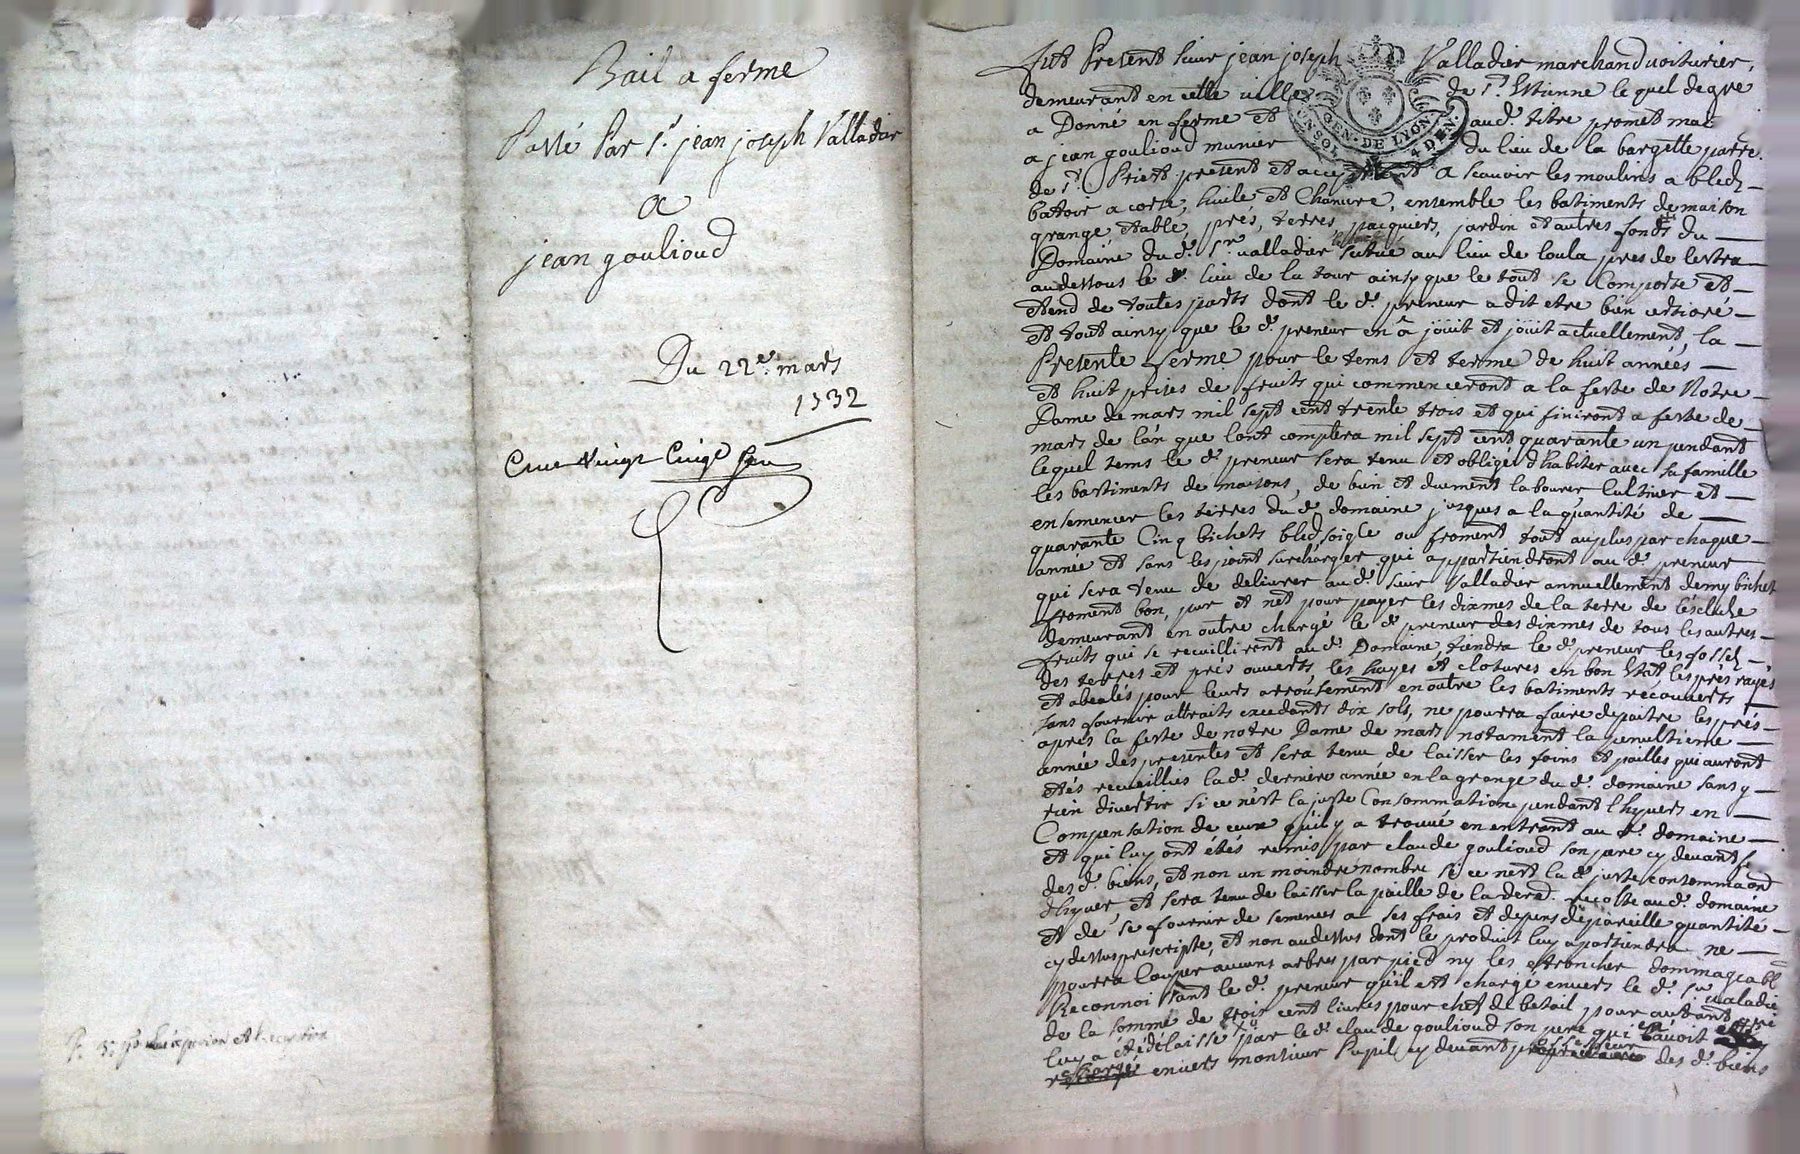 Bail a ferme
Passé Par Sr. jean joseph Valladier
a
jean goulioud
Du 22e. mars
1732
Cent Vingt Cinq
Fut Present sieur jean joseph Valladier marchand voiturier,
demeurant en cette ville de St. Etienne lequel de gré
a Donné en ferme et audt. titre promet
a jean goulioud munier du lieu de la bargette parre.
de St. Priest present et acceptant a scavoir les moulins a bled,
battoir a corse, huile et Chanvre, ensemble les batiments de maison
grange, etable, prés, terres pacquiers, jardin et autres fonds du
Domaine dud. Sr. valladier situé au lieu de soula pres de lestra
audessous le d. lieu de la tour ainsy que le tout se Comporte et
etend de toutes parts dont le d. preneur a dit etre bien certioré
et tout ainsy que le d. preneur en a jouit et jouit actuellement, la
Presente ferme pour le tems et terme de huit années
et huit prises de fruits qui commenceront a la feste de Notre
Dame de mars mil sept cent trente trois et qui finiront a feste de
mars de l'an que lont comptera mil sept cent quarante un pendant
lequel tems le d. preneur sera tenu et obligé d'habiter avec sa famille
les bastiments de maisons, de bien et duement labourer Cultiver et
ensemencer les terres du d. domaine jusques a la quantité de
quarante Cinq bichets bled soigle ou froment tout auplus par chaque
année et sans les point surcharger qui appartiendront au d. preneur
qui sera tenu de delivrer au d. sieur Valladier annuellement demy bichet
froment bon, pur et net pour payer les dixmes de la terre de lescluse
demeurant en outre chargé le d. preneur des dixmes de tous les autres
fruits qui se recuilliront au d. Domaine, tiendra le d. preneur les fossez
des terres et prés ouverts les hayes et clotures en bon Etat les prés rayés
et abealés pour leurs arrousement en outre les batiments recouverts
sans fournir attraits excedants dix sols, ne pourra faire depaitre les prés
aprés la feste de notre Dame de mars notament la penultieme
année des presentes et sera tenu de laisser les foins et pailles que auront
étés recueillies la d. derniere année en la grange du d. domaine sans y
rien divertir si ce n'est la juste Consommation pendant l'hyvers en
Compensation de ceux qu'il y a trouvé en entrant au d. domaine
et qui luy ont étés remis par claude goulioud son pere cy devant
des d. biens, et non un moindre nombre si ce nest la d. juste consommaond
dhyver, et sera tenu de laisser la paille de la derd. recolte au d. domaine
et de se fournir de semences a ses frais et depens de pareille quantité
cy dessus prescripte, et non au dessus dont le produit luy apartiendra ne
pourra Couper aucuns arbres par pied ny les etroncher dommageabl
Reconnoissant le d. preneur qu'il est chargé envers le d. Sr. valadie
de la somme de trois cent livres pour chef de betail pour autant que
luy a été délaissé par le d. claude goulioud son pere qui en avoit
envers monsieur Pupil cy devant possesseur des d. biens